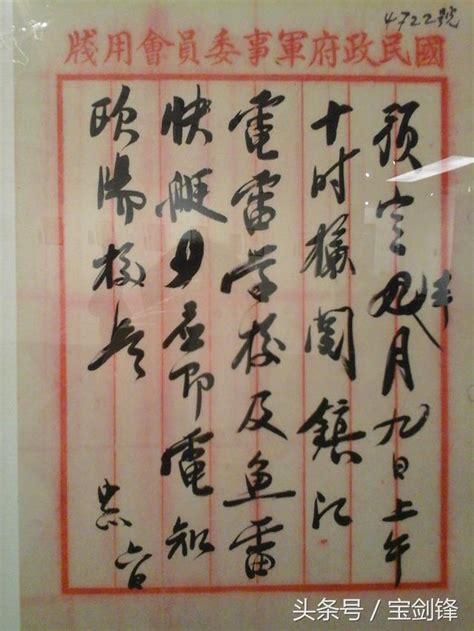 4722號
國民政府軍事委員會用牋
預定九月九日上午
十时檢閱鎮江
電雷学校及鱼雷
快艇可否即電知
欧陽校长
头条号/宝剑锋